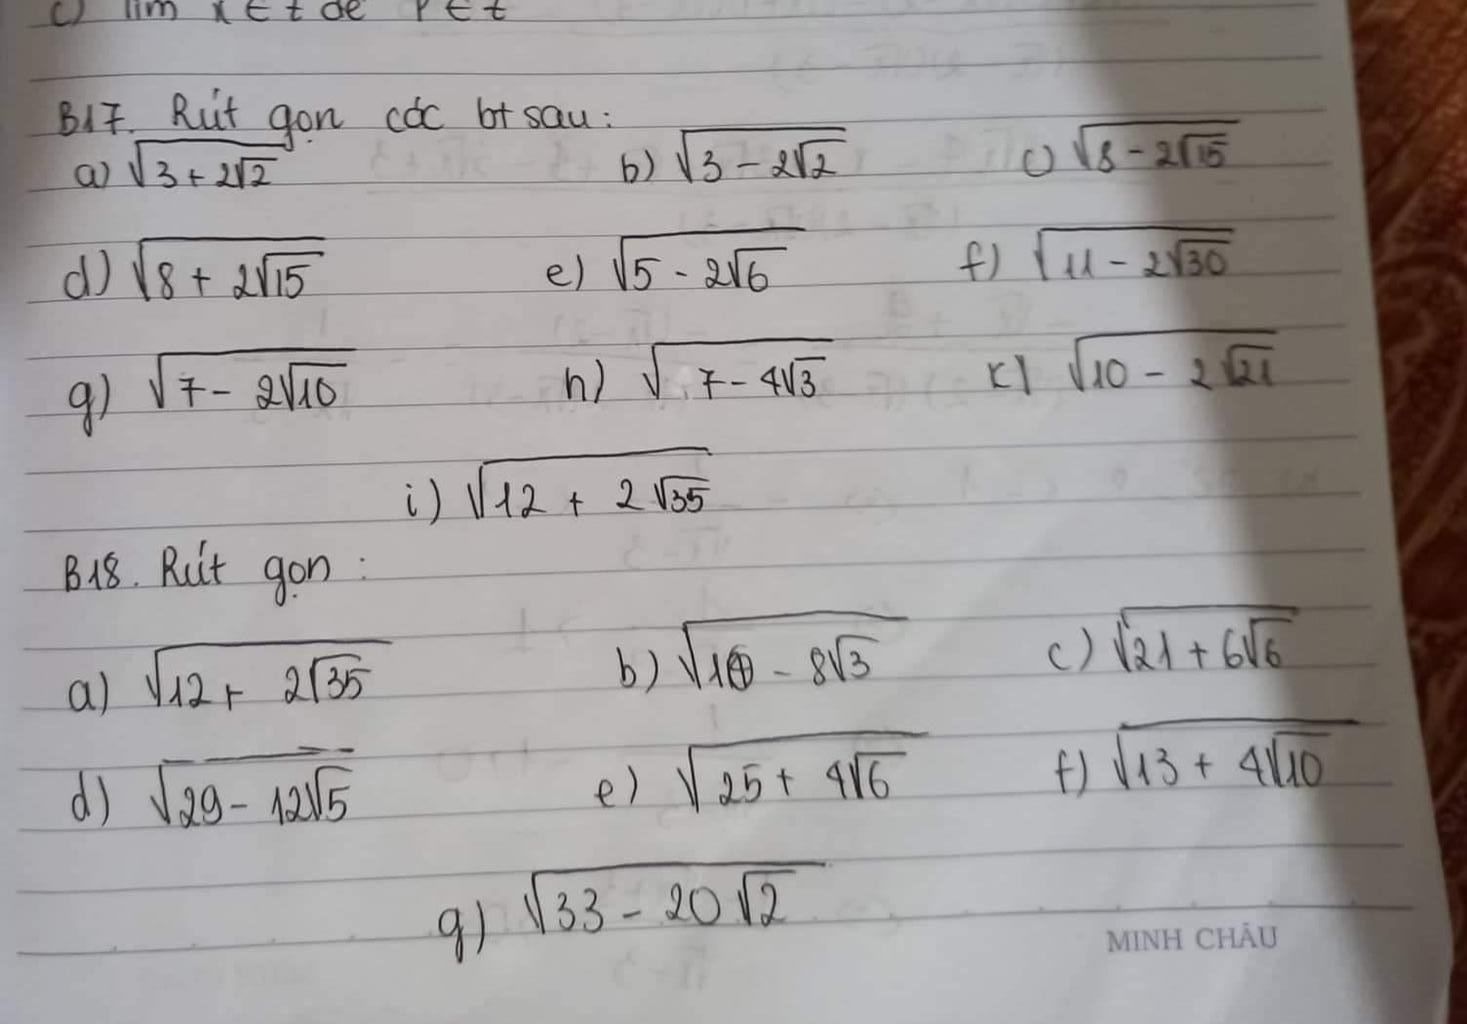 c) tìm x ∈ t để P ∈ t
B17. Rút gọn các bt sau:
a) √3 + 2√2 b) √3 - 2√2 c) √8 - 2√15
d) √8 + 2√15 e) √5 - 2√6 f) √11 - 2√30
g) √7 - 2√10 h) √7 - 4√3 k) √10 - 2√21
i) √12 + 2√35
B18. Rút gọn :
a) √12 + 2√35 b) - 8√3 c) √21 + 6√6
d) √29 - 12√5 e) √25 + 4√6 f) √13 + 4√10
g) √33 - 20√2
MINH CHÂU